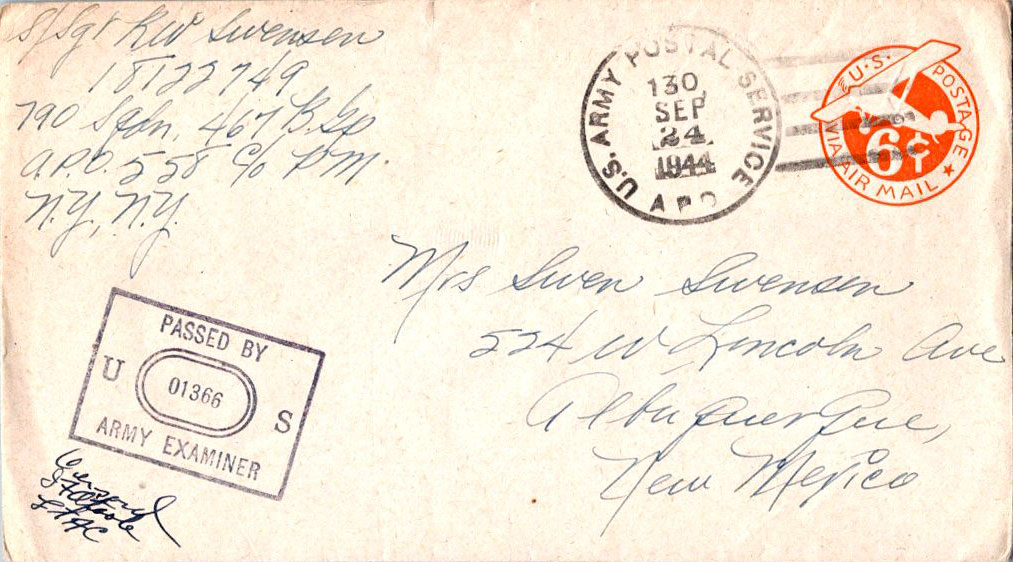 S/Sgt RW Swensen
18122749
790 Sqdn, 467 B.Gp
A.P.O. 558 c/o P.M.
N.Y., N.Y.
U.S. ARMY POSTAL SERVICE
130
SEP
24
1944
A.P.O.
U.S. POSTAGE
6¢
VIA AIR MAIL
Mrs Swen Swensen
524 W Lincoln Ave
Albuquerque,
New Mexico
PASSED BY
U 01366 S
ARMY EXAMINER